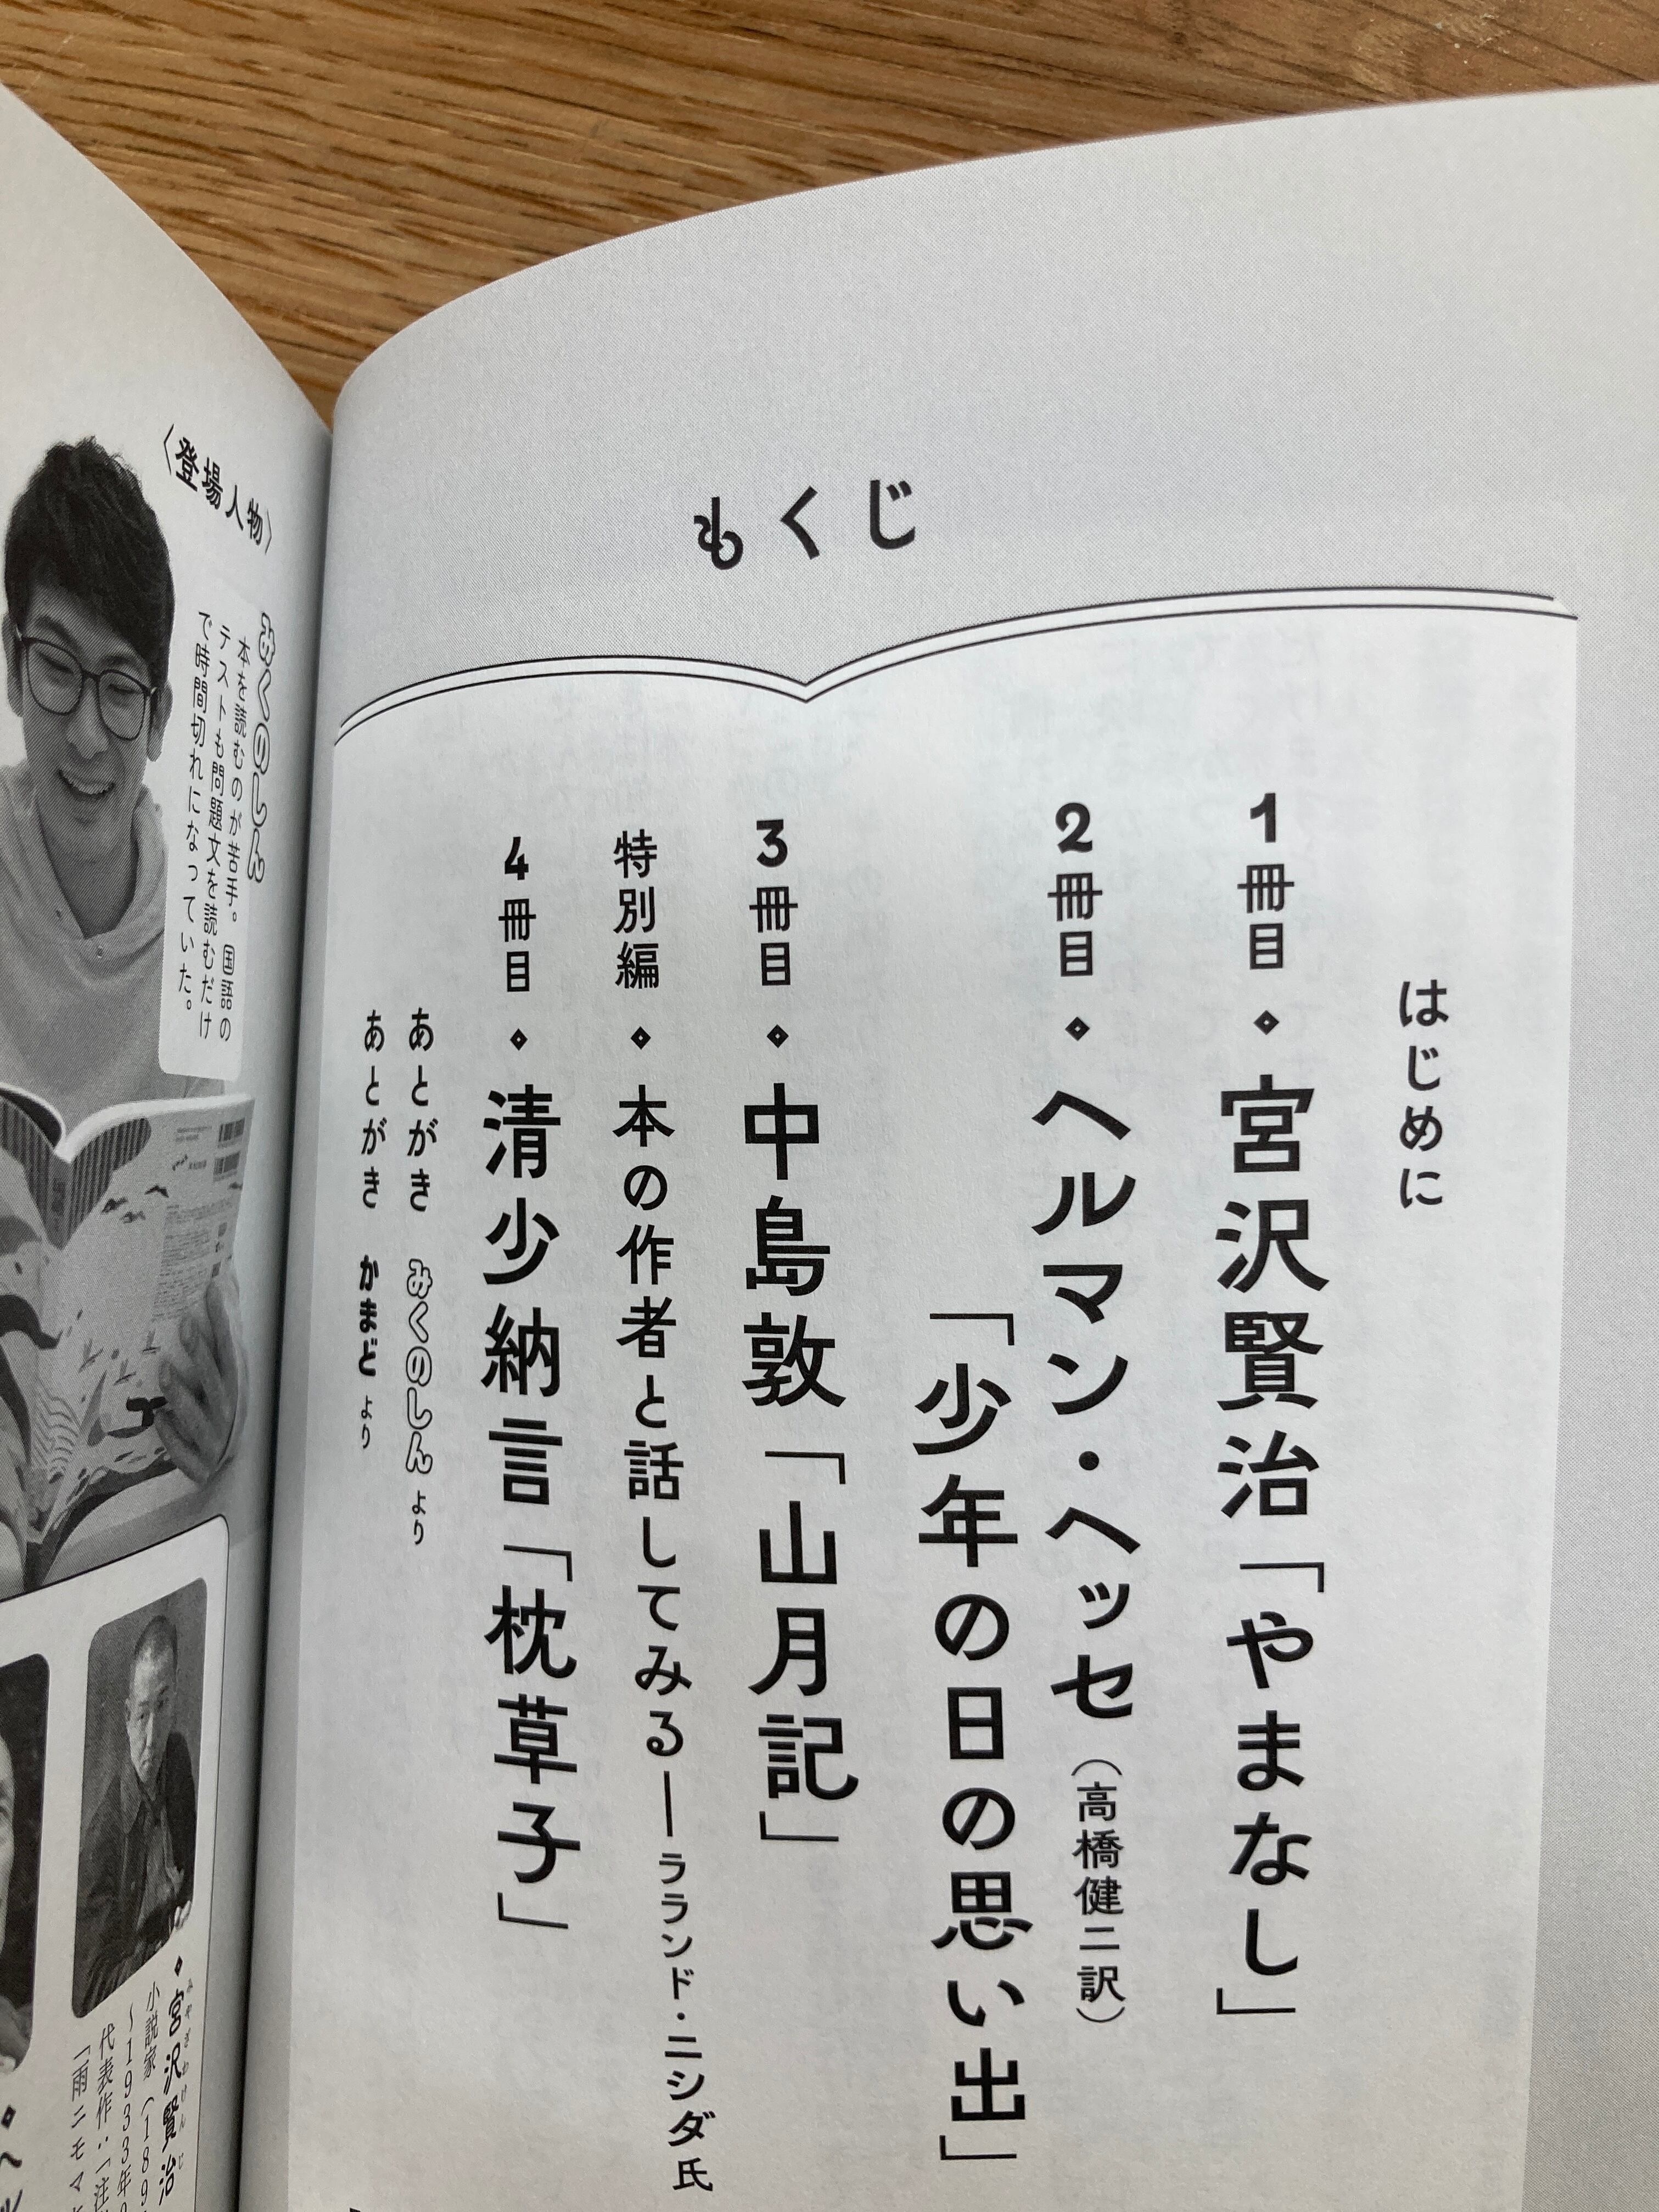 もくじ
はじめに
1冊目 ◆ 宮沢賢治「やまなし」
2冊目 ◆ ヘルマン・ヘッセ（高橋健二訳）
「少年の日の思い出」
3冊目 ◆ 中島敦「山月記」
特別編 ◆ 本の作者と話してみる——ララランド・ニシダ氏
4冊目 ◆ 清少納言「枕草子」
あとがき みくのしんより
あとがき かまどより
〈登場人物〉
みくのしん
本を読むのが苦手。国語の
テストも問題文を読むだけ
で時間切れになっていた。
◆宮沢賢治
みやざわけんじ
小説家（189
～1933年
代表作：「注
「雨ニモマ